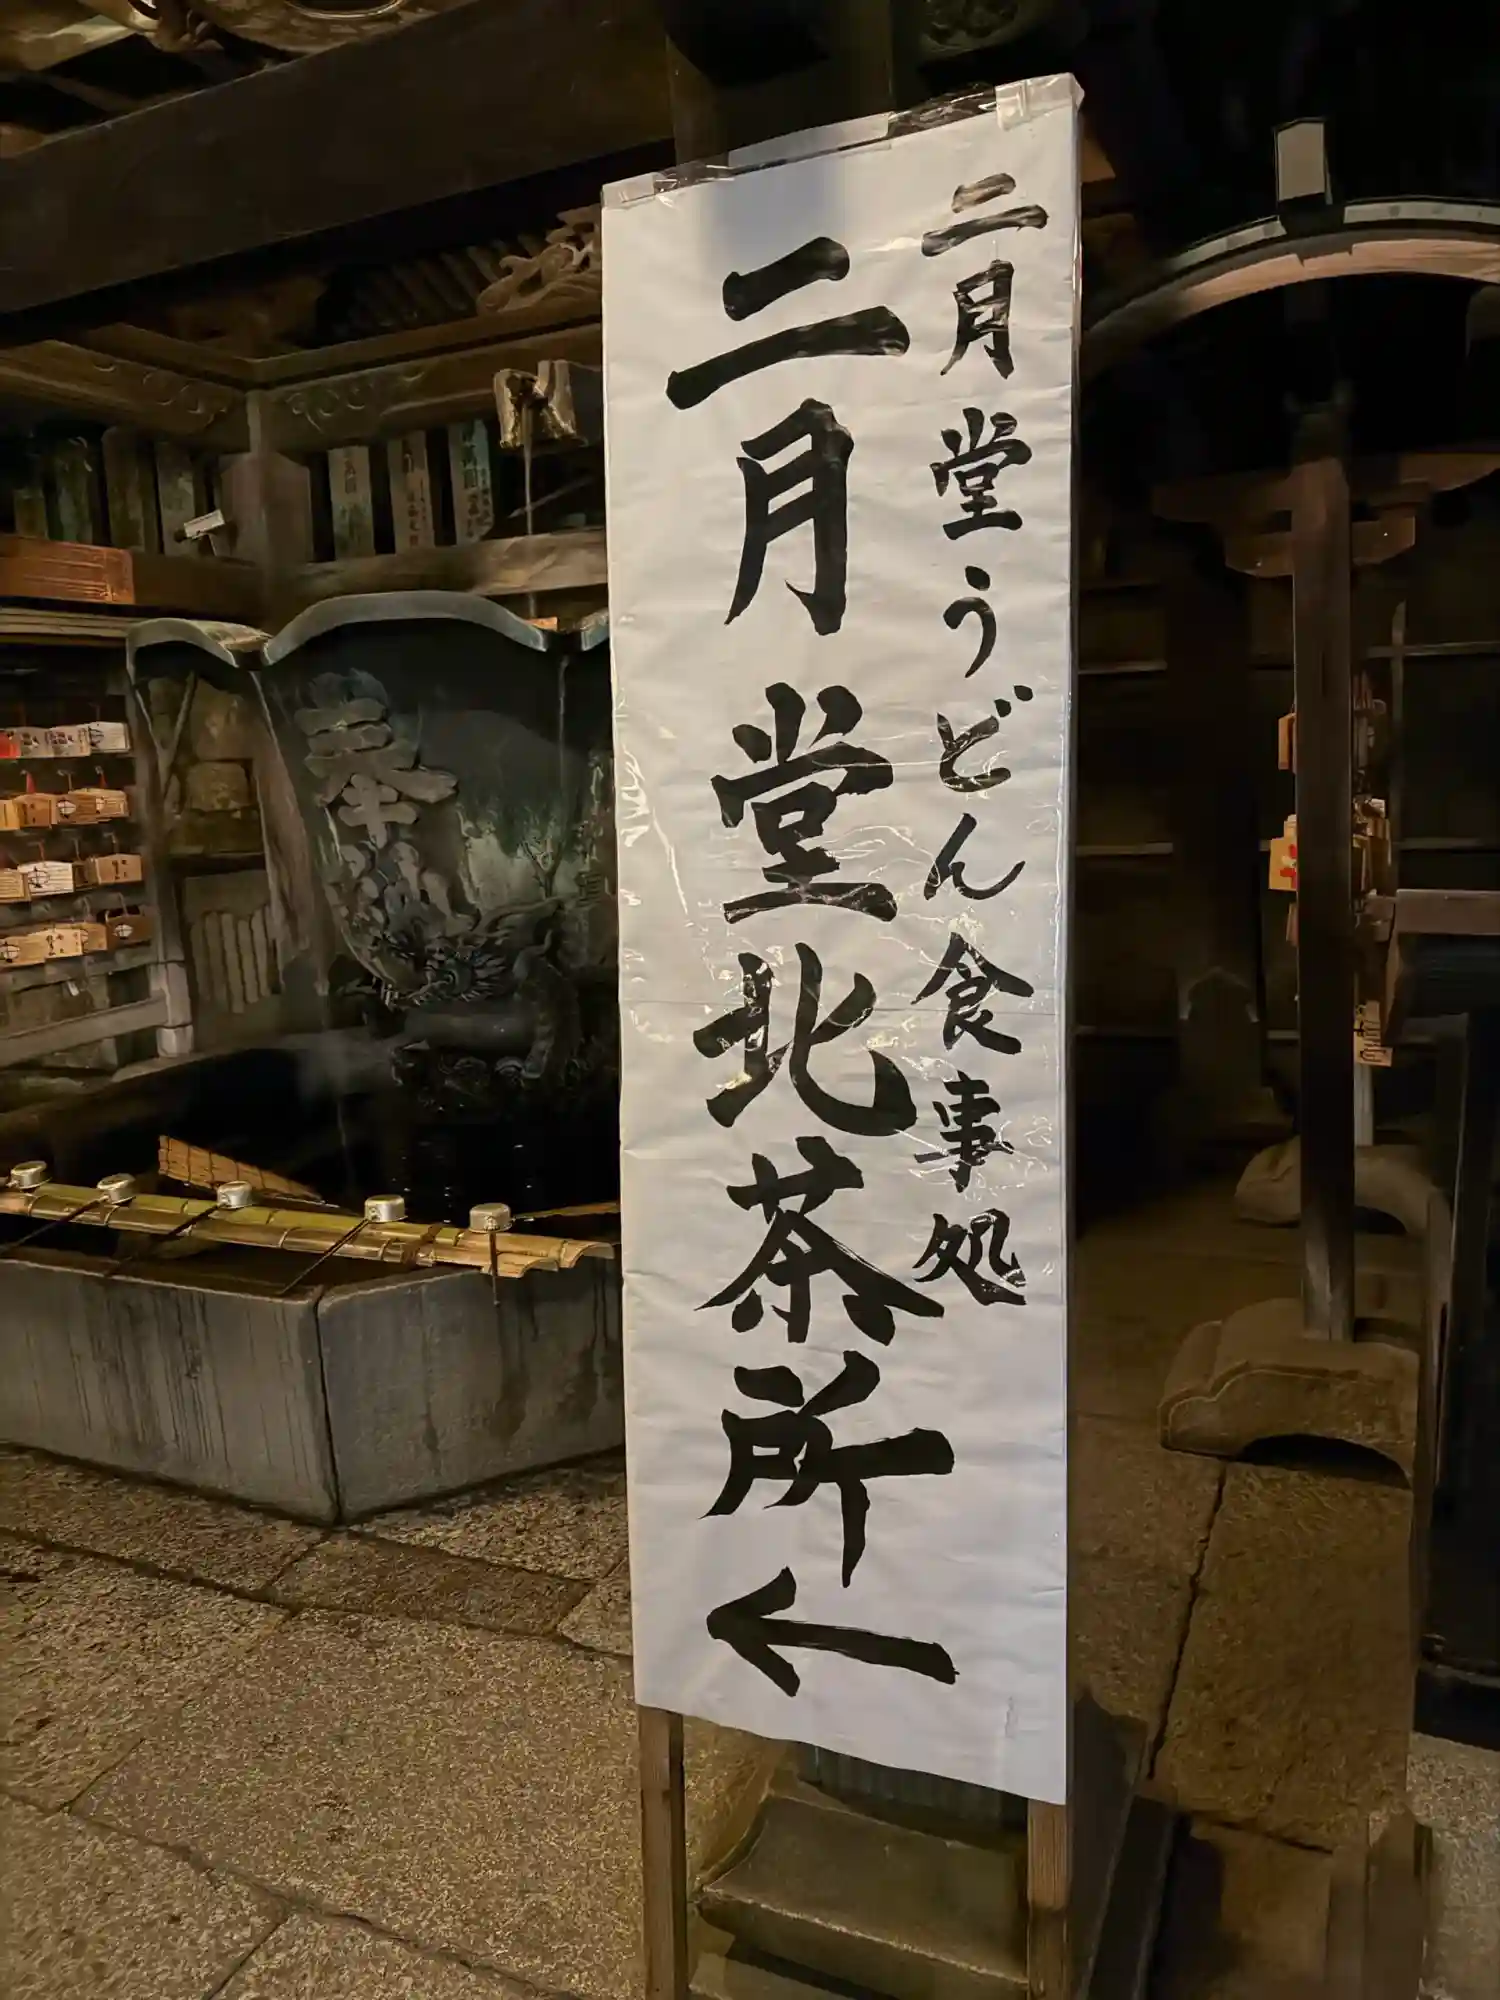 二月堂うどん食事処
二月堂北茶所
←
奉納